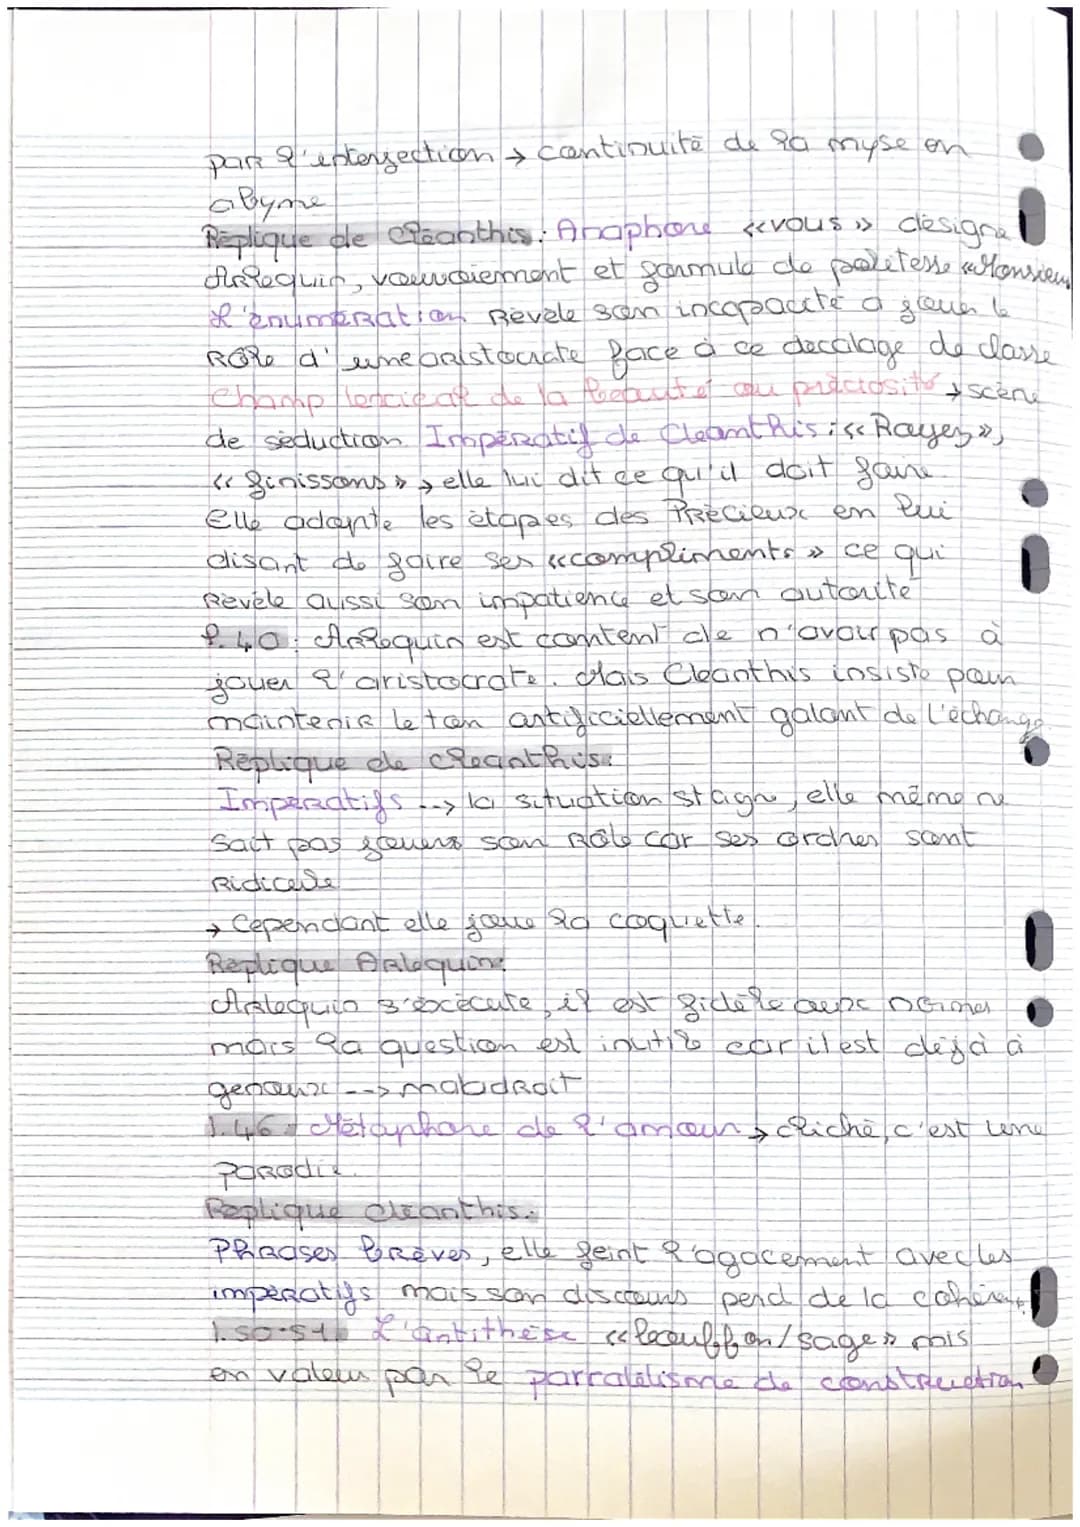 par l'intersection → continuité de la myse en
abyme
Réplique de Cléanthis : Anaphore «vous» désigne
Arlequin, vouvoiement et formule de politesse «Monsieur
L'énumération Révèle son incapacité a jouer le
Rôle d'une aristocrate face à ce decalage de classe
Champ lexical de la beauté ou préciosité → scène
de séduction Impératif de Cleanthis : «Rayez»,
«finissons» → elle lui dit ce qu'il doit faire
Elle adopte les étapes des Précieux en lui
disant de faire ses «compliments» ce qui
Révèle aussi son impatience et son autorité
l.40 : Arlequin est content de n'avoir pas à
jouer l'aristocrate. Mais Cleanthis insiste pour
maintenir le ton artificiellement galant de l'échange
Réplique de Cleanthis:
Impératifs --> la situation stagne, elle même ne
sait pas jouer son Rôle car ses ordres sont
Ridicule
→ Cependant elle joue la coquette.
Réplique Arlequin:
Arlequin s'éxécute, il est fidèle aux normes
mais la question est inutile car il est déjà à
genoux --> maladroit
l.46 : Métaphore de l'amour → cliché, c'est une
parodie.
Réplique Cléanthis:
Phrases brèves, elle feint l'agacement avec les
impératifs mais son discours perd de la cohérence
l.50-51 : L'antithèse «bouffon/sage» mis
en valeur par le parralélisme de construction